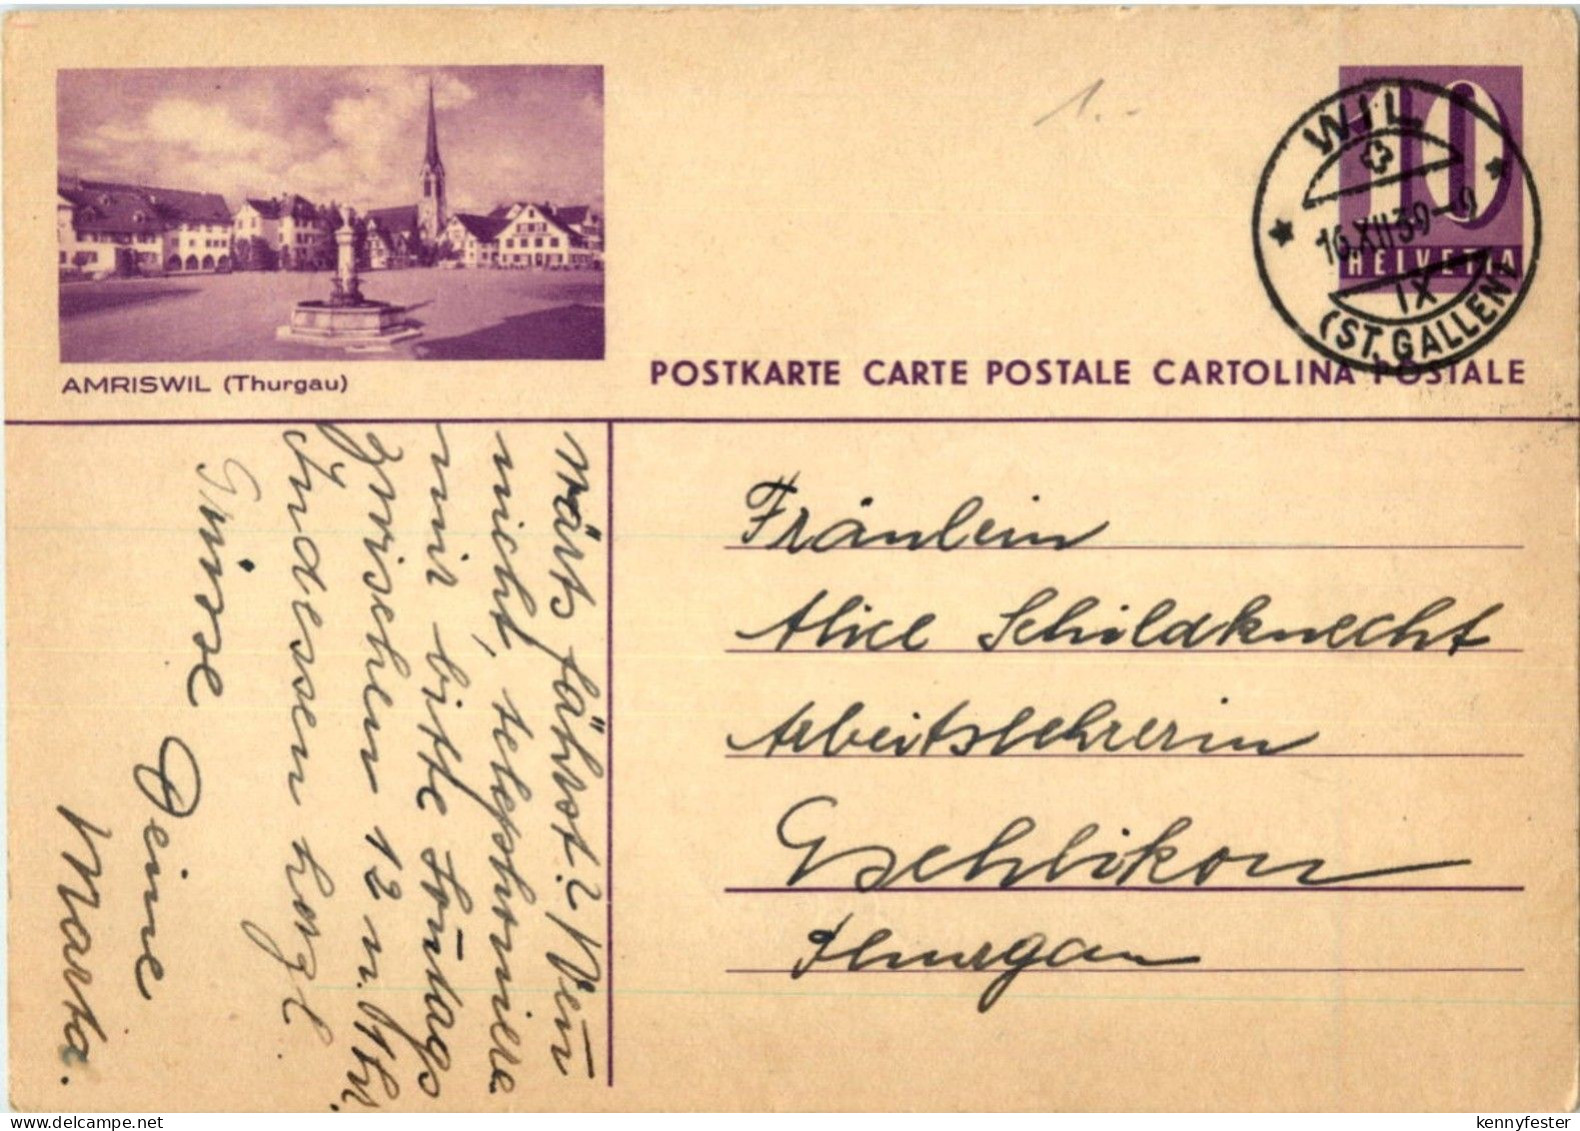 1.-
10
HELVETIA
WIL
16.XII 39-9
IX
(ST. GALLEN)
AMRISWIL (Thurgau)
POSTKARTE CARTE POSTALE CARTOLINA POSTALE
wärts fährst? Weñ
nicht, telephoniere
mir bitte Soñtags
zwischen 12 u. 1 Uhr.
Indessen herzl
Grüsse Deine
Marta.
Fräulein
Alice Schildknecht
Arbeitslehrerin
Eschlikon
Thurgau
www.delcampe.net
kennyfester